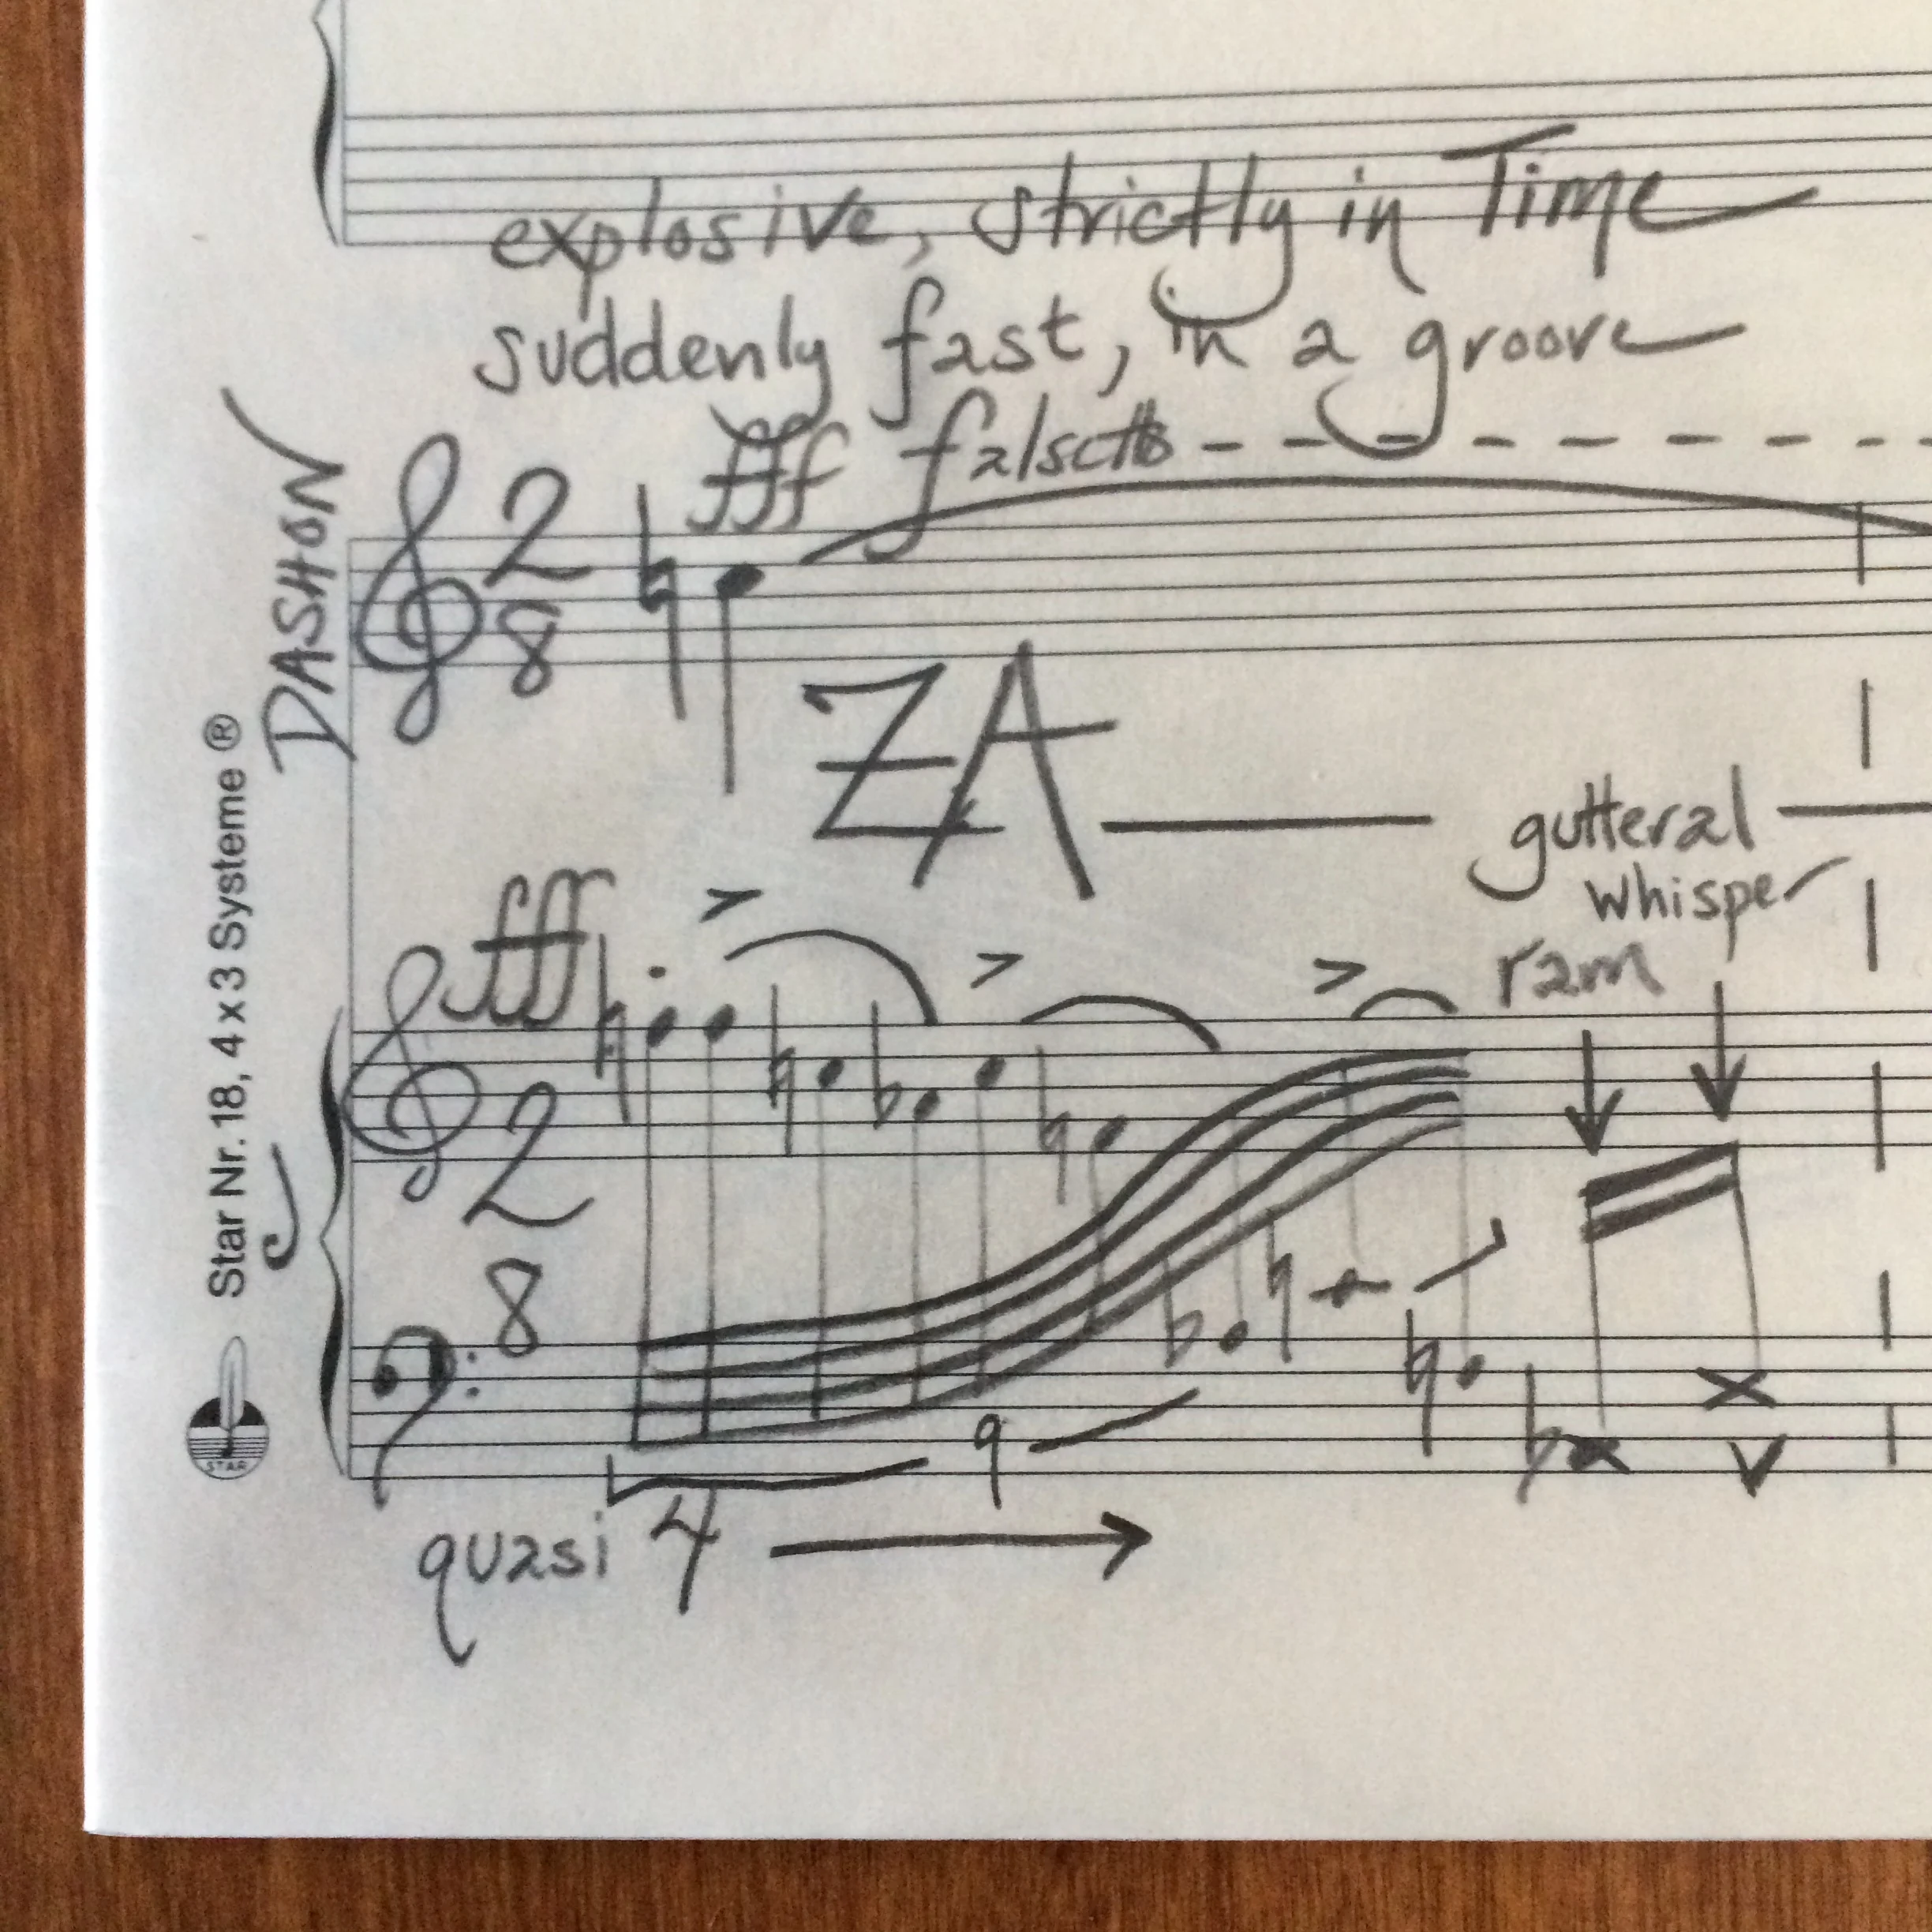 explosive, strictly in Time
suddenly fast, in a groove
fff falsetto
DASHON
2
8
ZA
gutteral
whisper
fff
ram
J
2
8
9
quasi 4
Star Nr. 18, 4 x 3 Systeme ®
STAR